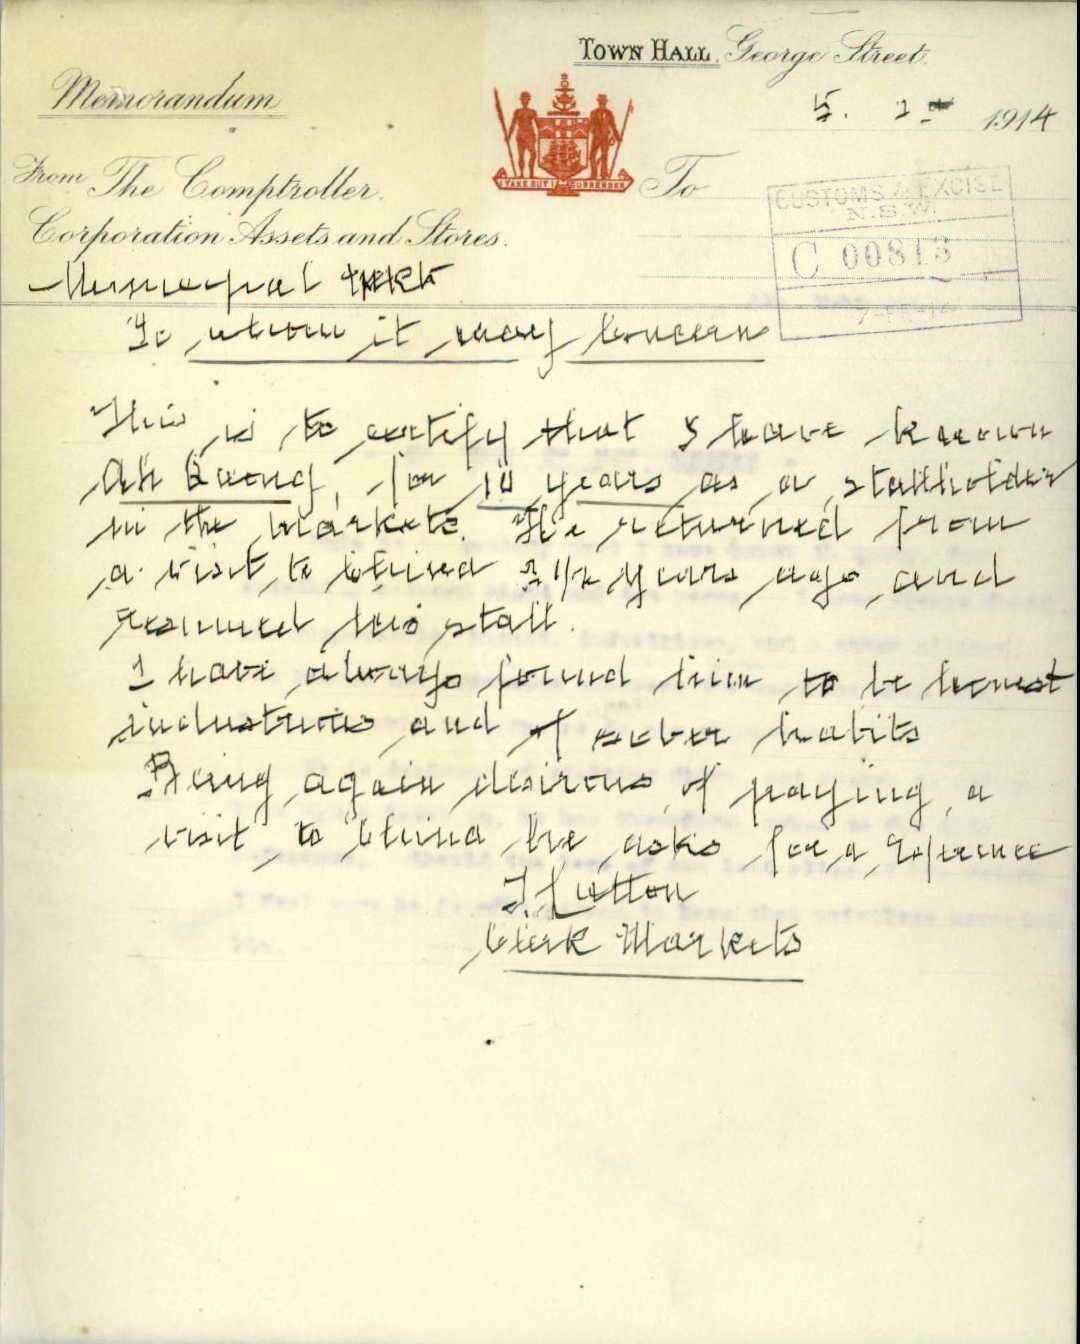 TOWN HALL, George Street.
Memorandum
5. 2 1914
From The Comptroller.
To
Corporation Assets and Stores.
CUSTOMS & EXCISE
N.S.W.
C 00813
Municipal Mkts
To whom it may Concern
This is to certify that I have known
Ah Quong, for 10 years as a stallholder
in the Markets. He returned from
a visit to China 2 1/2 years ago and
resumed his stall.
I have always found him to be honest
industrious and of sober habits
Being again desirous of paying a
visit to China he asks for a reference
J. Lutton
Clerk Markets